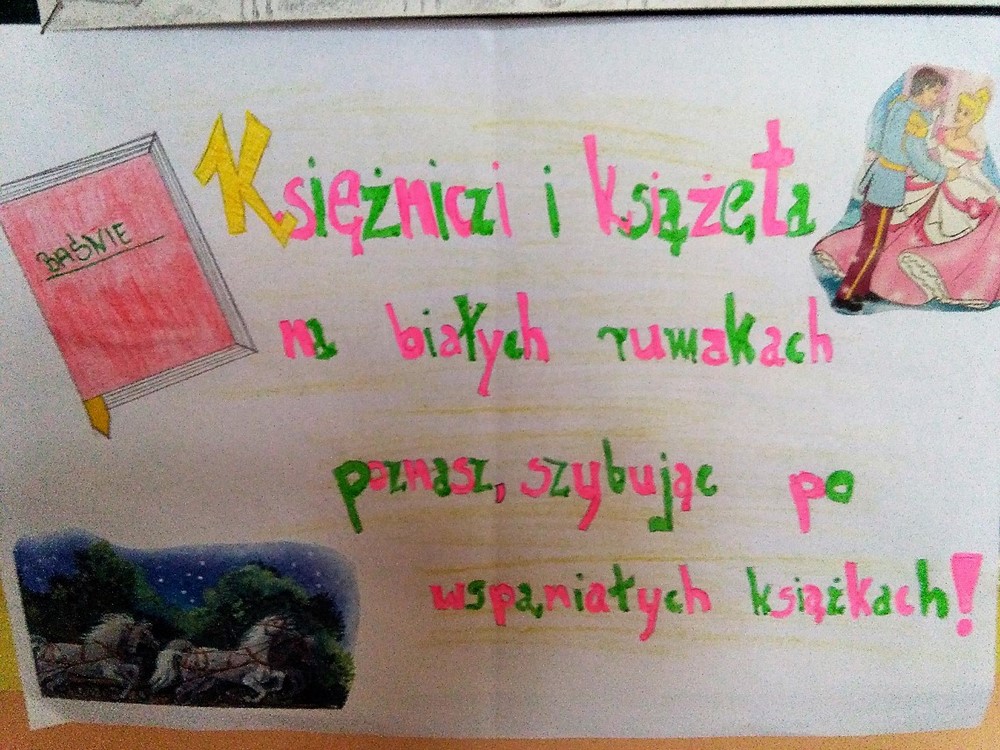 BAŚNIE
Księżniczi i książęta
na białych rumakach
poznasz, szybując po
wspąniałych książkach!